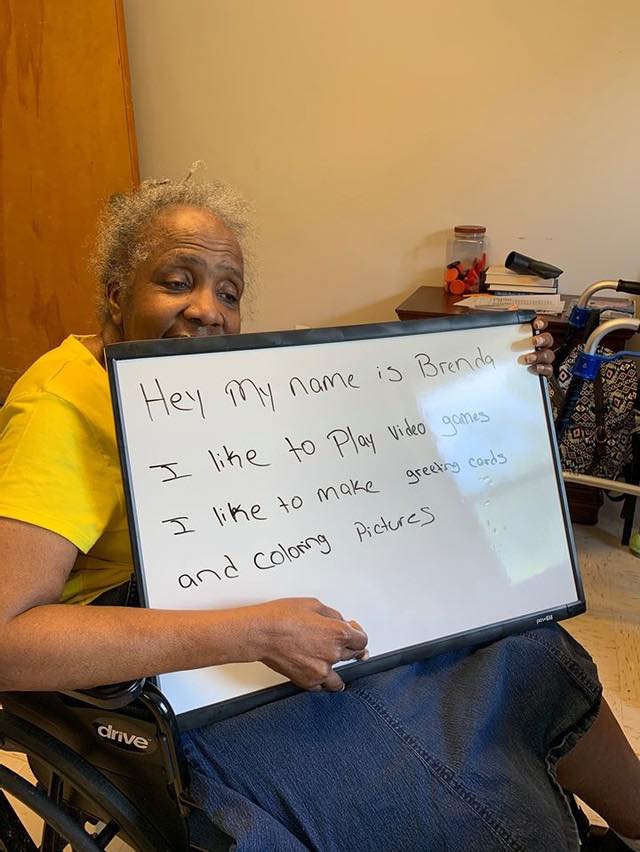 Hey My name is Brenda
I like to Play video games
I like to make greeting cards
and coloring Pictures
drive